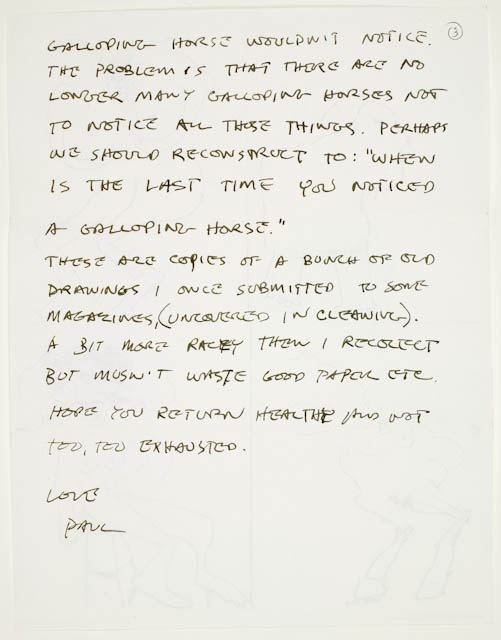 3
GALLOPING HORSE WOULDN'T NOTICE.
THE PROBLEM IS THAT THERE ARE NO
LONGER MANY GALLOPING HORSES NOT
TO NOTICE ALL THOSE THINGS. PERHAPS
WE SHOULD RECONSTRUCT TO: "WHEN
IS THE LAST TIME YOU NOTICED
A GALLOPING HORSE."
THESE ARE COPIES OF A BUNCH OF OLD
DRAWINGS I ONCE SUBMITTED TO SOME
MAGAZINES, (UNCOVERED IN CLEANING).
A BIT MORE RACEY THEN I RECOLECT
BUT MUSN'T WASTE GOOD PAPER ETC.
HOPE YOU RETURN HEALTHY AND NOT
TOO, TOO EXHAUSTED.
LOVE
PAUL